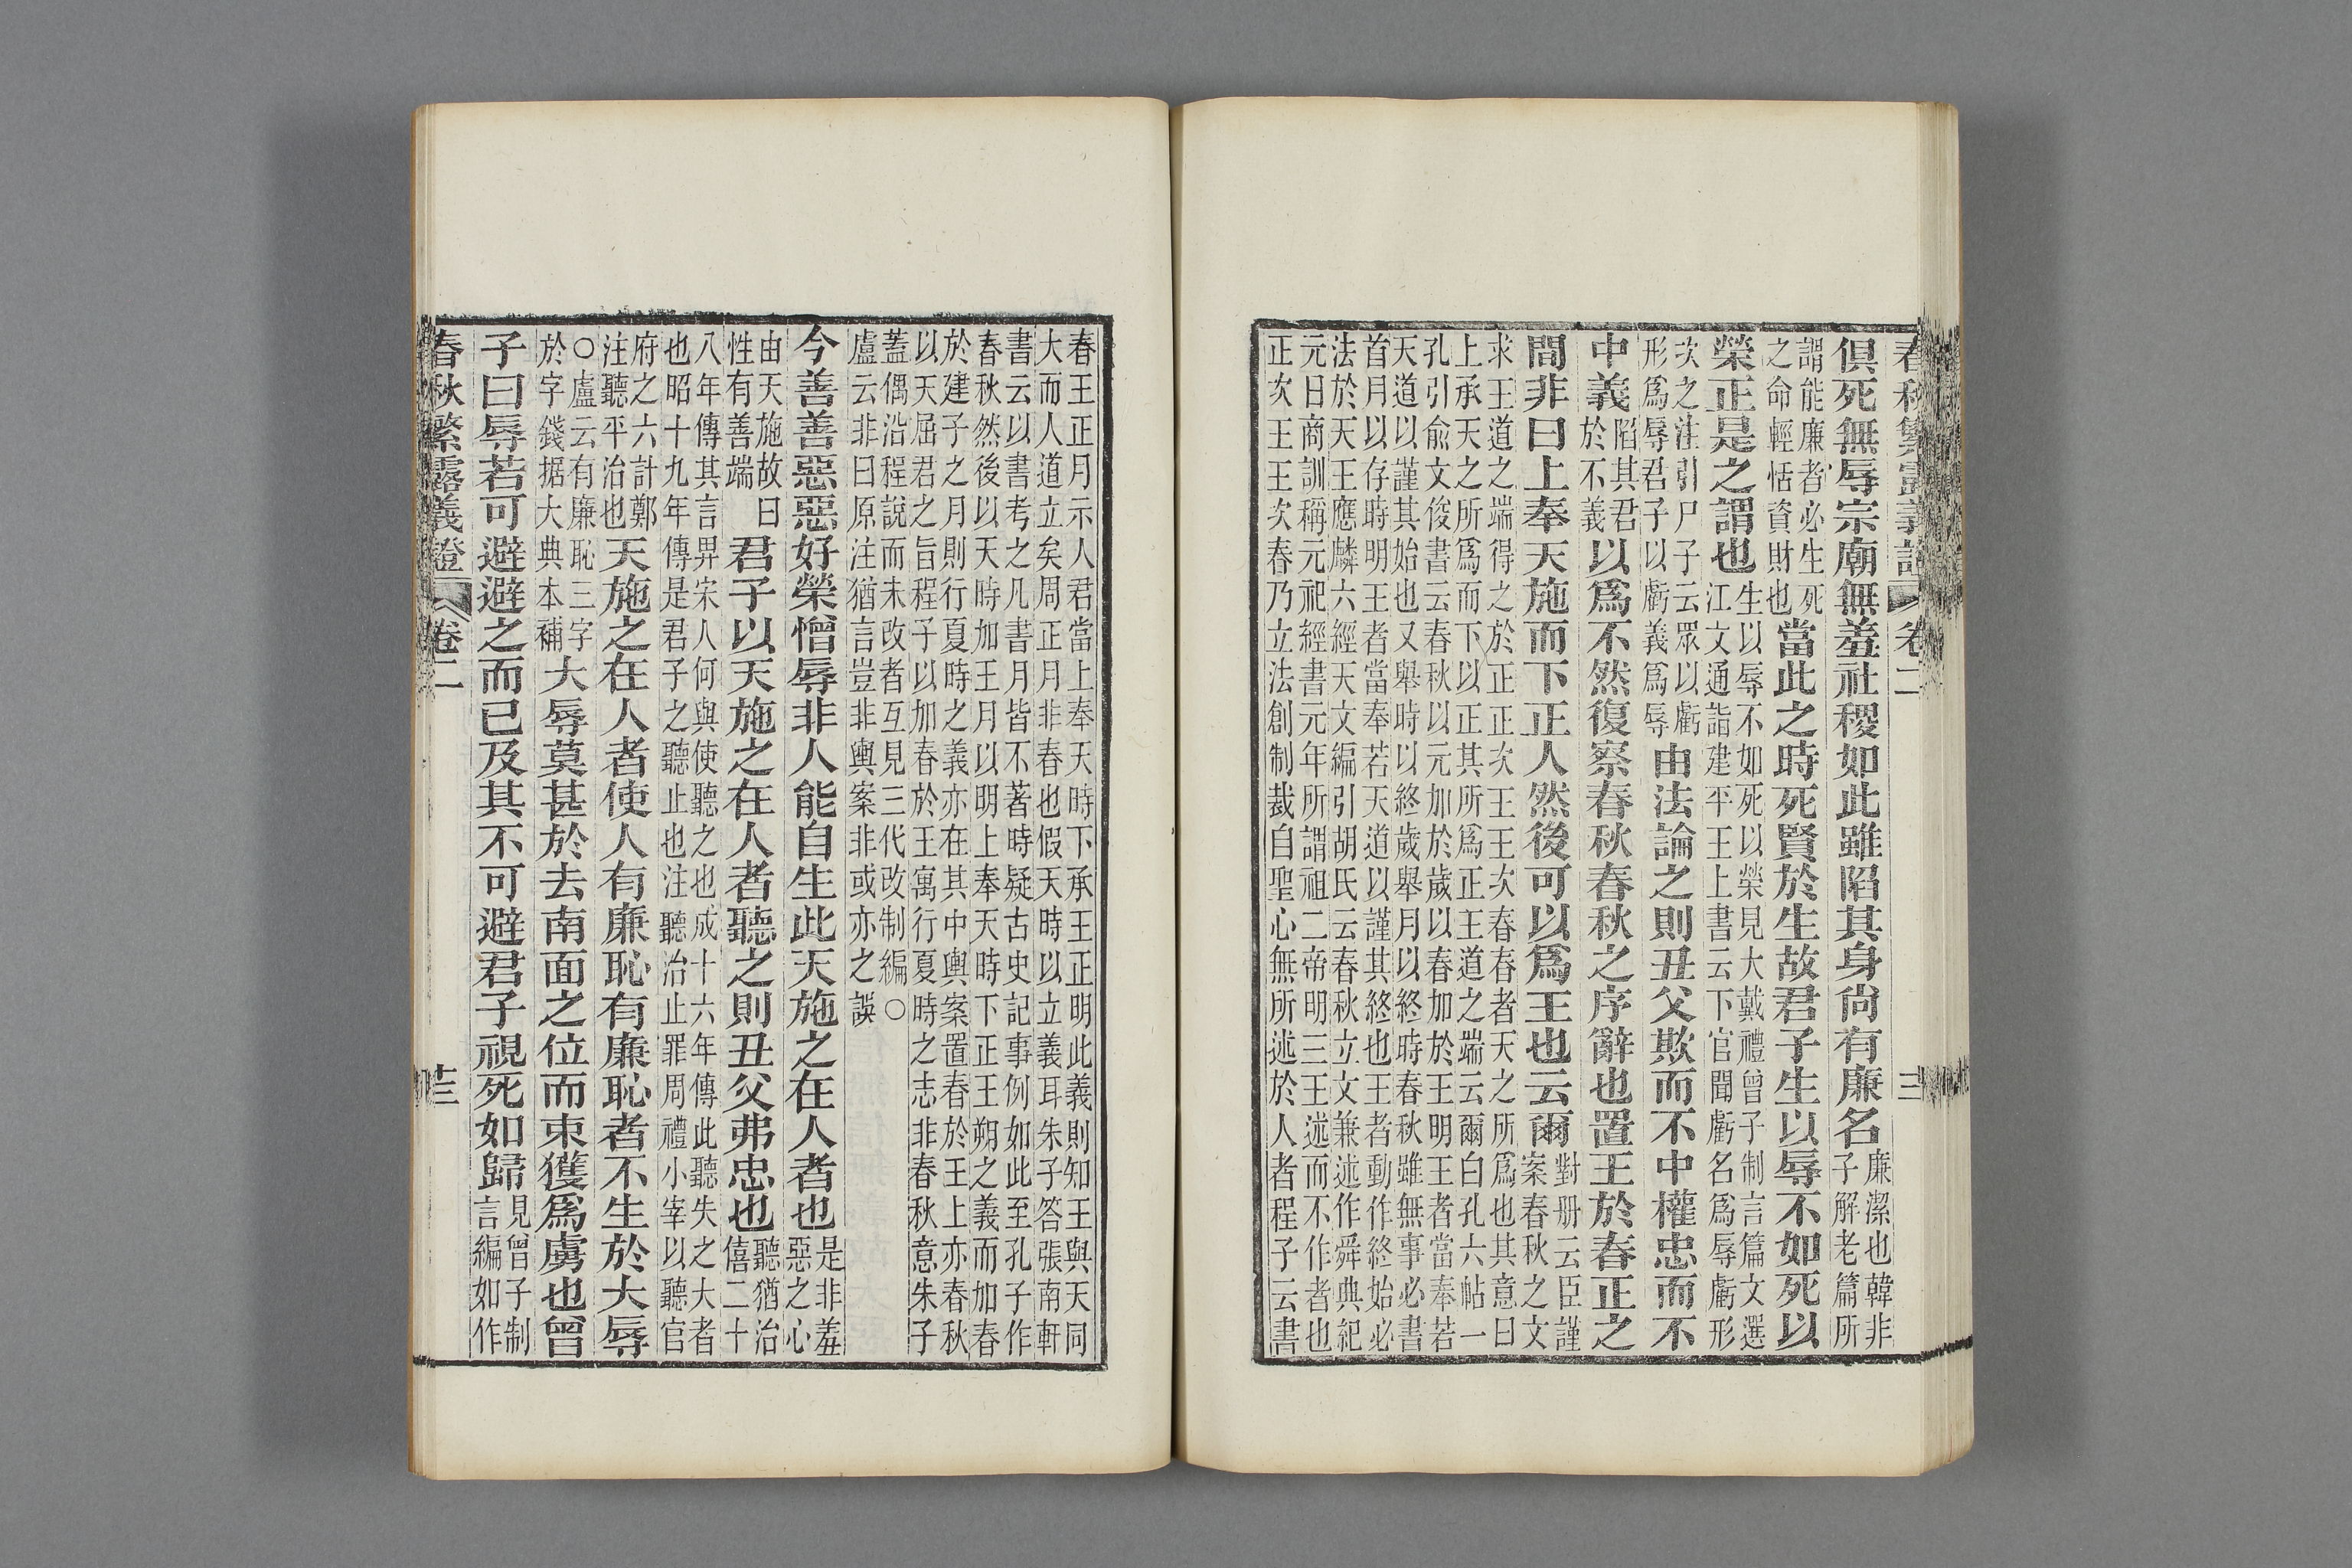 春秋繁露義證 卷二 三
俱死無辱宗廟無羞社稷如此雖陷其身尙有廉名廉潔也韓非
子解老篇所
謂能廉者必生死
之命輕恬資財也當此之時死賢於生故君子生以辱不如死以
榮正是之謂也生以辱不如死以榮見大戴禮曾子制言篇文選
江文通詣建平王上書云下官聞虧名爲辱虧形
次之注引尸子云眾以虧
形爲辱君子以虧義爲辱由法論之則丑父欺而不中權忠而不
中義陷其君
於不義以爲不然復察春秋春秋之序辭也置王於春正之
間非曰上奉天施而下正人然後可以爲王也云爾對册云臣謹
案春秋之文
求王道之端得之於正正次王王次春春者天之所爲也其意曰
上承天之所爲而下以正其所爲正王道之端云爾白孔六帖一
孔引兪文俊書云春秋以元加於歲以春加於王明王者當奉若
天道以謹其始也又舉時以終歲舉月以終時春秋雖無事必書
首月以存時明王者當奉若天道以謹其終也王者動作終始必
法於天王應麟六經天文編引胡氏云春秋立文兼述作舜典紀
元日商訓稱元祀經書元年所謂祖二帝明三王述而不作者也
正次王王次春乃立法創制裁自聖心無所述於人者程子云書
春王正月示人君當上奉天時下承王正明此義則知王與天同
大而人道立矣周正月非春也假天時以立義耳朱子答張南軒
書云以書考之凡書月皆不著時疑古史記事例如此至孔子作
春秋然後以天時加王月以明上奉天時下正王朔之義而加春
於建子之月則行夏時之義亦在其中輿案置春於王上亦春秋
以天屈君之旨程子以加春於王寓行夏時之志非春秋意朱子
蓋偶沿程說而未改者互見三代改制編○
盧云非曰原注猶言豈非輿案非或亦之誤
今善善惡惡好榮憎辱非人能自生此天施之在人者也是非羞
惡之心
由天施故曰
性有善端君子以天施之在人者聽之則丑父弗忠也聽猶治
僖二十
八年傳其言畀宋人何與使聽之也成十六年傳此聽失之大者
也昭十九年傳是君子之聽止也注聽治止罪周禮小宰以聽官
府之六計鄭
注聽平治也天施之在人者使人有廉恥有廉恥者不生於大辱
○盧云有廉恥三字
於字錢据大典本補大辱莫甚於去南面之位而束獲爲虜也曾
子曰辱若可避避之而已及其不可避君子視死如歸見曾子制
言編如作
春秋繁露義證 卷二 十三